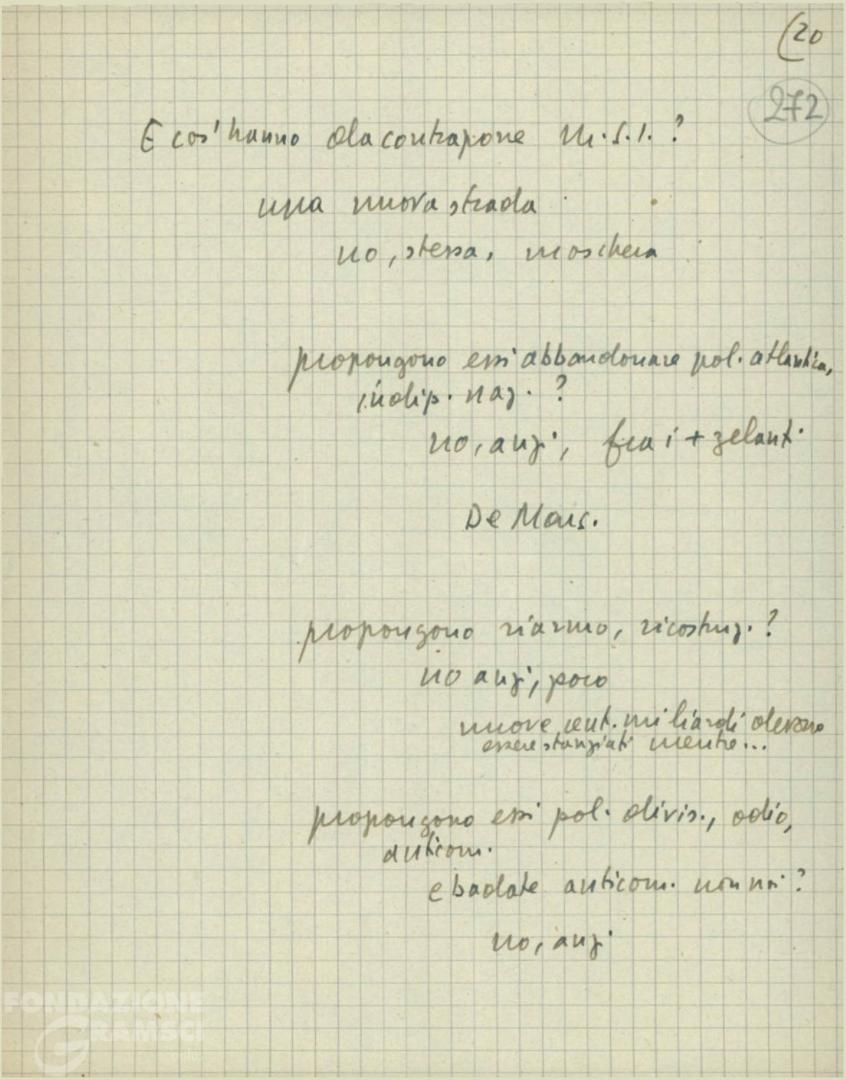 (20
272
E cos' hanno da contrapone M.S.I.?
una nuova strada
no, stessa, maschera
propongono essi abbandonare pol. atlantica,
indip. naz. ?
no, anzi, fra i + zelanti
De Mars.
propongono riarmo, ricostruz. ?
no anzi, poco
nuove cent. miliardi devono
essere stanziati mentre...
propongono essi pol. divis., odio,
anticom.
e badate anticom. non noi ?
no, anzi
FONDAZIONE
GRAMSCI